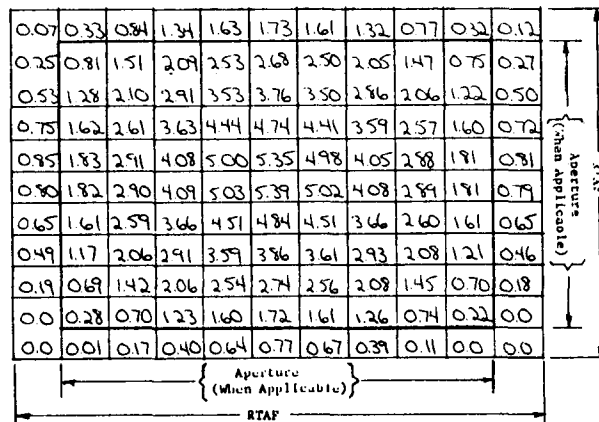 0.07 0.33 0.84 1.34 1.63 1.73 1.61 1.32 0.77 0.32 0.12
0.25 0.81 1.51 2.09 2.53 2.68 2.50 2.05 1.47 0.75 0.27
0.53 1.28 2.10 2.91 3.53 3.76 3.50 2.86 2.06 1.22 0.50
0.75 1.62 2.61 3.63 4.44 4.74 4.41 3.59 2.57 1.60 0.72
0.85 1.83 2.91 4.08 5.00 5.35 4.98 4.05 2.88 1.81 0.81
0.80 1.82 2.90 4.09 5.03 5.39 5.02 4.08 2.89 1.81 0.79
0.65 1.61 2.59 3.66 4.51 4.84 4.51 3.66 2.60 1.61 0.65
0.49 1.17 2.06 2.91 3.59 3.86 3.61 2.93 2.08 1.21 0.46
0.19 0.69 1.42 2.06 2.54 2.74 2.56 2.08 1.45 0.70 0.18
0.0 0.28 0.70 1.23 1.60 1.72 1.61 1.26 0.74 0.22 0.0
0.0 0.01 0.17 0.40 0.64 0.77 0.67 0.39 0.11 0.0 0.0
Aperture
(When Applicable)
Aperture
(When Applicable)
RTAF